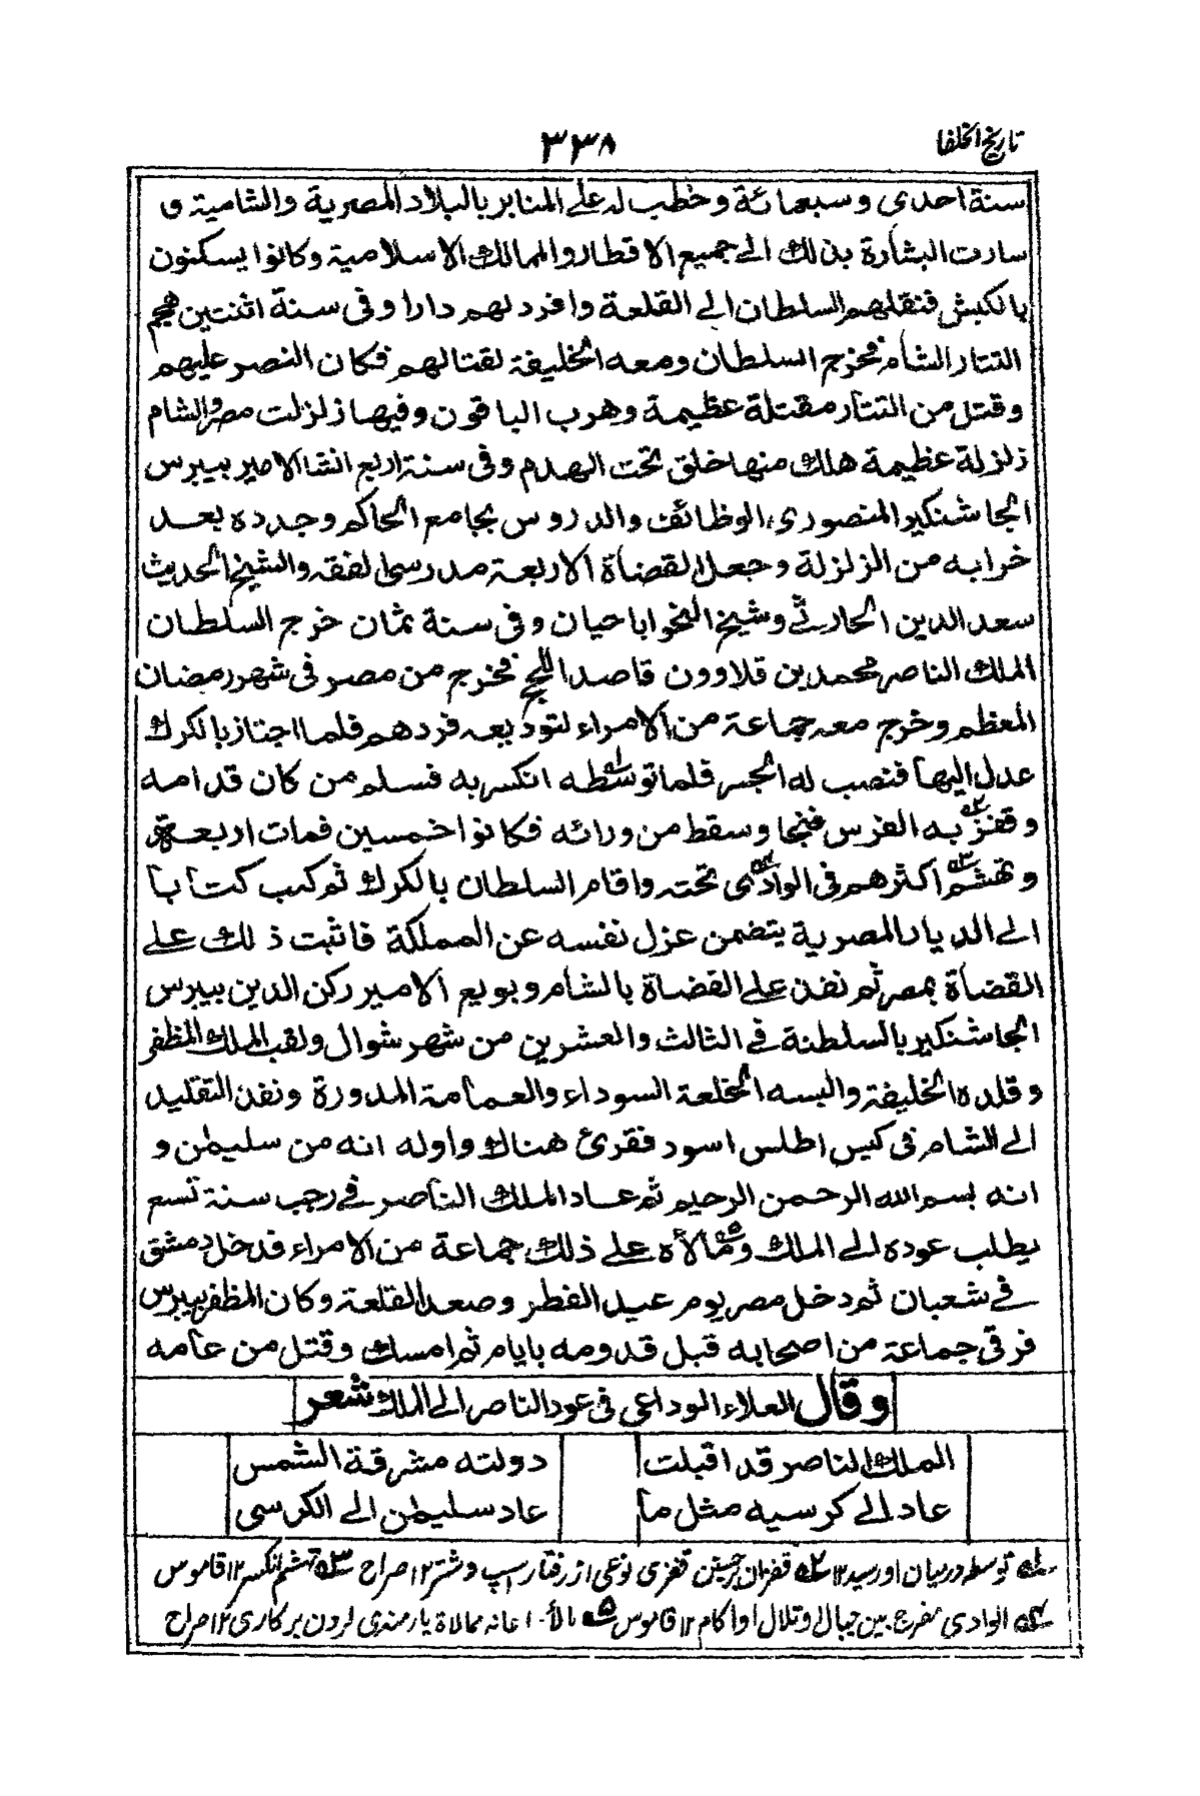 تاريخ الخلفا
٣٣٨
سنة احدى و سبعمائة و خطب له على المنابر بالبلاد المصرية والشامية و
سارت البشارة بذلك الى جميع الاقطار والممالك الاسلامية وكانوا يسكنون
بالكبش فنقلهم السلطان الى القلعة وافرد لهم دارا وفى سنة اثنتين هجم
التتار الشام فخرج السلطان ومعه الخليفة لقتالهم فكان النصر عليهم
وقتل من التتار مقتلة عظيمة وهرب الباقون وفيها زلزلت مصر والشام
زلزلة عظيمة هلك منها خلق تحت الهدم وفى سنة اربع انشا الامير بيبرس
الجاشنكير المنصورى الوظائف والدروس بجامع الحاكم وجدده بعد
خرابه من الزلزلة وجعل القضاة الاربعة مدرسى الفقه والشيخ الحديث
سعد الدين الحارثى وشيخ النحو ابا حيان وفى سنة ثمان خرج السلطان
الملك الناصر محمد بن قلاوون قاصدا للحج فخرج من مصر فى شهر رمضان
المعظم وخرج معه جماعة من الامراء لتوديعه فردهم فلما اجتاز بالكرك
عدل اليها فنصب له الجسر فلما توسطه انكسر به فسلم من كان قدامه
وقفز به الفرس فنجا وسقط من ورائه فكانوا خمسين فمات اربعة
وتهشم اكثرهم فى الوادى تحته واقام السلطان بالكرك ثم كتب كتابا
الى الديار المصرية يتضمن عزل نفسه عن المملكة فاثبت ذلك على
القضاة بمصر ثم نفذ على القضاة بالشام وبويع الامير ركن الدين بيبرس
الجاشنكير بالسلطنة فى الثالث والعشرين من شهر شوال ولقب الملك المظفر
وقلده الخليفة والبسه الخلعة السوداء والعمامة المدورة ونفذ التقليد
الى الشام فى كيس اطلس اسود فقرئ هناك واوله انه من سليمن و
انه بسم الله الرحمن الرحيم ثم عاد الملك الناصر فى رجب سنة تسع
يطلب عوده الى الملك ومالأه على ذلك جماعة من الامراء فدخل دمشق
فى شعبان ثم دخل مصر يوم عيد الفطر وصعد القلعة وكان المظفر بيبرس
فر فى جماعة من اصحابه قبل قدومه بايام ثم امسك وقتل من عامه
وقال العلاء الوداعى فى عود الناصر الى الملك شعر
الملك الناصر قد اقبلت دولته مشرقة الشمس
عاد الى كرسيه مثل ما عاد سليمن الى الكرسى
له توسط درميان او رسيد ١٢ قفزان برجستن قفزى نوعى از رفتار اسپ و شتر ١٢ صراح تهشم انكسر ١٢ قاموس
الوادى مفرج بين جبال او تلال او اكام ١٢ قاموس مالأ اعانه ممالاة يارمندى كردن بر كارى ١٢ صراح